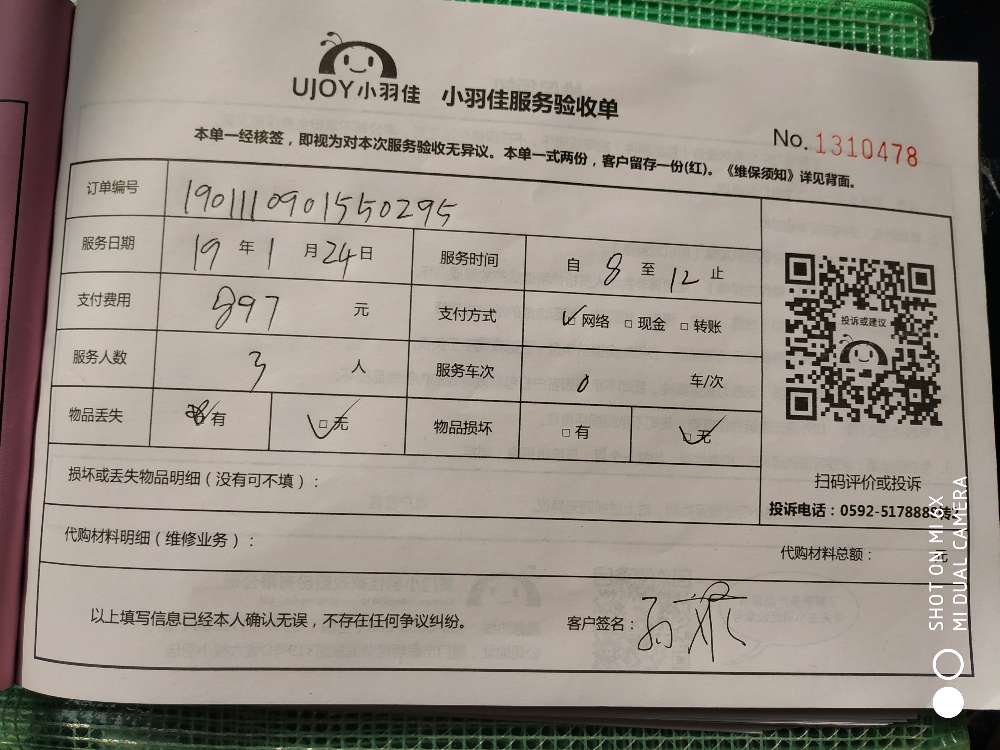 UJOY小羽佳 小羽佳服务验收单
No. 1310478
本单一经核签，即视为对本次服务验收无异议。本单一式两份，客户留存一份(红)。《维保须知》详见背面。
订单编号 1901110901550295
服务日期 19 年 1 月 24 日 服务时间 自 8 至 12 止
支付费用 897 元 支付方式 ☑网络 □现金 □转账
服务人数 3 人 服务车次 0 车/次
物品丢失 □有 ☑无 物品损坏 □有 ☑无
投诉或建议
损坏或丢失物品明细（没有可不填）：
扫码评价或投诉
投诉电话：0592-5178885转
代购材料明细（维修业务）： 代购材料总额： 元
以上填写信息已经本人确认无误，不存在任何争议纠纷。 客户签名：
SHOT ON MI 6X
MI DUAL CAMERA